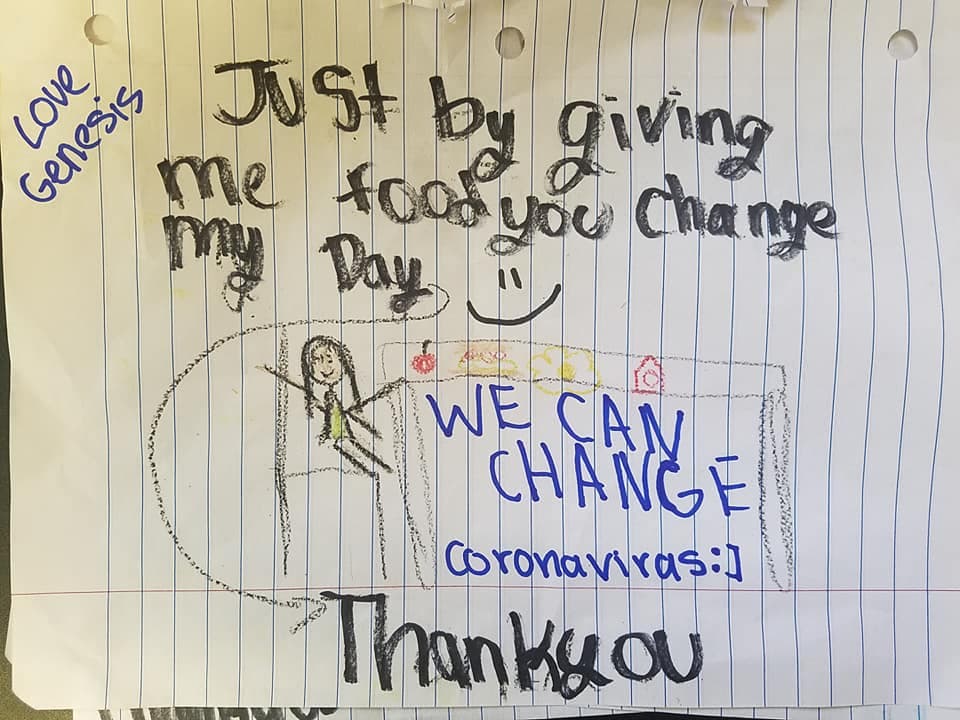 Love
Genesis
Just by giving
me food you Change
my Day
WE CAN
CHANGE
coronaviras:]
Thankyou